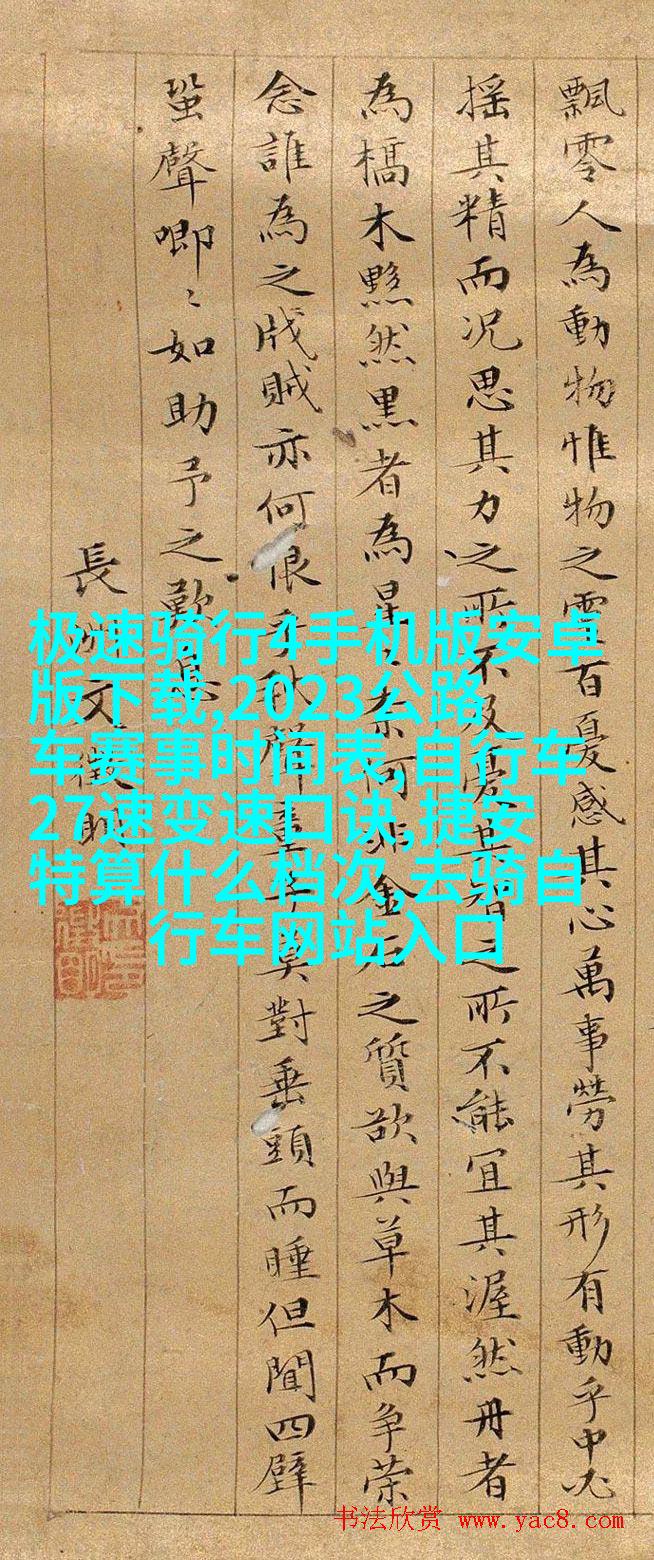 飄零人為動物惟物之靈百憂感其心萬事勞其形有動乎中必
搖其精而况思其力之所不及憂其智之所不能宜其渥然丹者
為槁木黟然黒者為星〻奈何非金石之質欲與草木而争荣
念誰為之戕賊亦何恨乎秋聲童子莫對垂頭而睡但聞四壁
蛩聲唧〻如助予之歎息
長洲文徵明
极速骑行4手机版安卓
版下载,2023公路
车赛事时间表,自行车
27速变速口诀,捷安
特算什么档次,去骑自
行车网站入口
书法欣赏 www.yac8.com